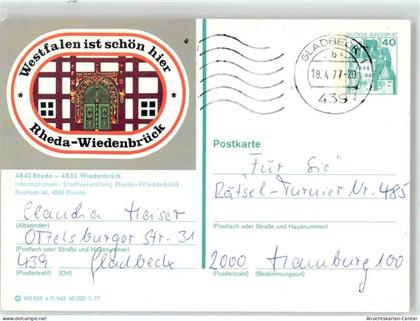 Westfalen ist schön hier
Rheda-Wiedenbrück
4840 Rheda - 4832 Wiedenbrück
Informationen: Stadtverwaltung Rheda-Wiedenbrück
Postfach 44, 4840 Rheda
Claudia Heiser
(Absender)
Ortelsburger Str. 31
(Postfach oder Straße und Hausnummer)
439 Gladbeck
(Postleitzahl) (Ort)
615 865 e 11/143 40 000 1. 77
GLADBECK
18.4.77-20
439
DEUTSCHE BUNDESPOST
40
Postkarte
"Für Sie"
Rätsel-Turnier Nr. 485
(Postfach oder Straße und Hausnummer)
2000 Hamburg 100
(Postleitzahl) (Bestimmungsort)
Ansichtskarten-Center